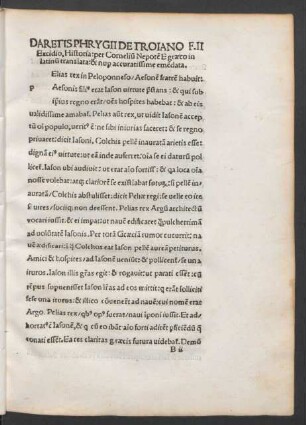 DARETIS PHRYGII DE TROIANO F.II
Excidio, Historia: per Corneliū Nepotē E græco in
latinū translata: & nup accuratissime emēdata.
p
Elias rex in Peloponneso / Aesonē fratrem habuit.
Aesonis fili⁹ erat Iason uirtute pſtans: & qui sub
ipsius regno erāt / oēs hospites habebat: & ab eis
ualidissime amabat̄. Pelias aūt rex, ut uidit Iasonē accep
tū oī populo, uerit⁹ ē ne sibi iniurias faceret: & se regno
priuaret: dicit Iasoni, Colchis pellē inauratā arietis esset:
dignā ei⁹ uirtute: ut eā inde auferret: oīa se ei daturū polli
cet̄. Iason ubi audiuit: ut erat aīo fortiss⁹: & qa loca oīa
nosse uolebat: atq; clariorē se existimabat fotuꝝ: si pellē in
auratā / Colchis abstulisset: dicit Peliæ regi: se uelle eo ire
si uires / sociiq; non deessent. Pelias rex Argū architectū
vocari iussit: & ei impauit nauē ædificaret q̄pulcherrimā
ad uolūtatē Iasonis. Per totā Græciā rumor cucurrit: na
uē ædificari: q̄ Colchos eat Iason pellē aureā petiturus.
Amici & hospites / ad Iasonē ueniūt: & pollicent̄ / se una
ituros. Iason illis gr̄as egit: & rogauit: ut parati essēt: cū
tpus supuenisset Iason lr̄as ad eos mittit: q erāt sollicitī
sese una ituros: & illico cōuenerūt ad nauē: cui nomē erat
Argo. Pelias rex / qb⁹ op⁹ fuerat / naui iponi iussit. Et ad
hortat⁹ ē Iasonē, & q cū eo ibāt: aīo forti adirēt pficiēdū q
conati essēt. Ea res claritas græcis futura uidebat̄. Demō
B ii